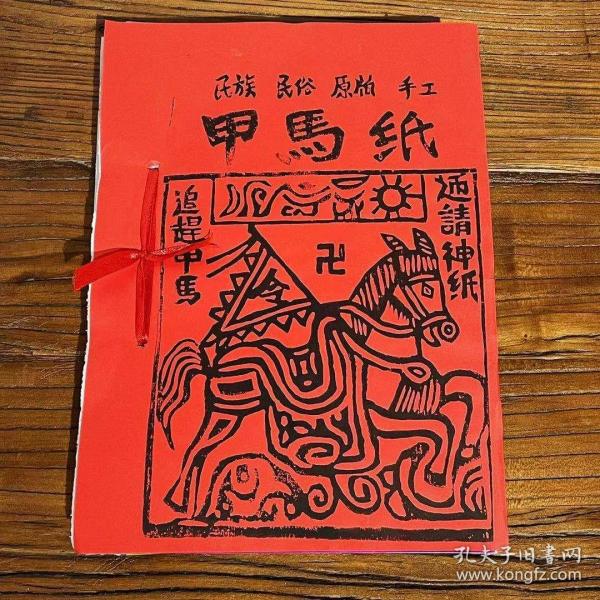 民族 民俗 原版 手工
甲馬紙
追趕甲馬
令
卍
迺請神紙
孔夫子旧書网
www.kongfz.com